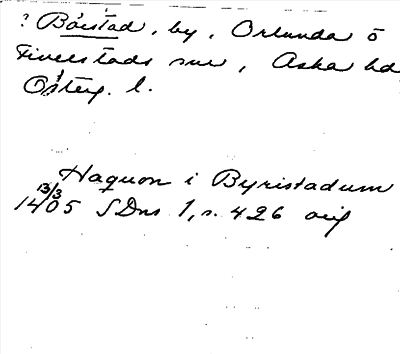 ? Båstad, by, Orlunda o
Fivelstads snr, Aska hd
Österg. l.
Haquon i Byristadum
13/3
1405 SDns 1, s. 426 orig